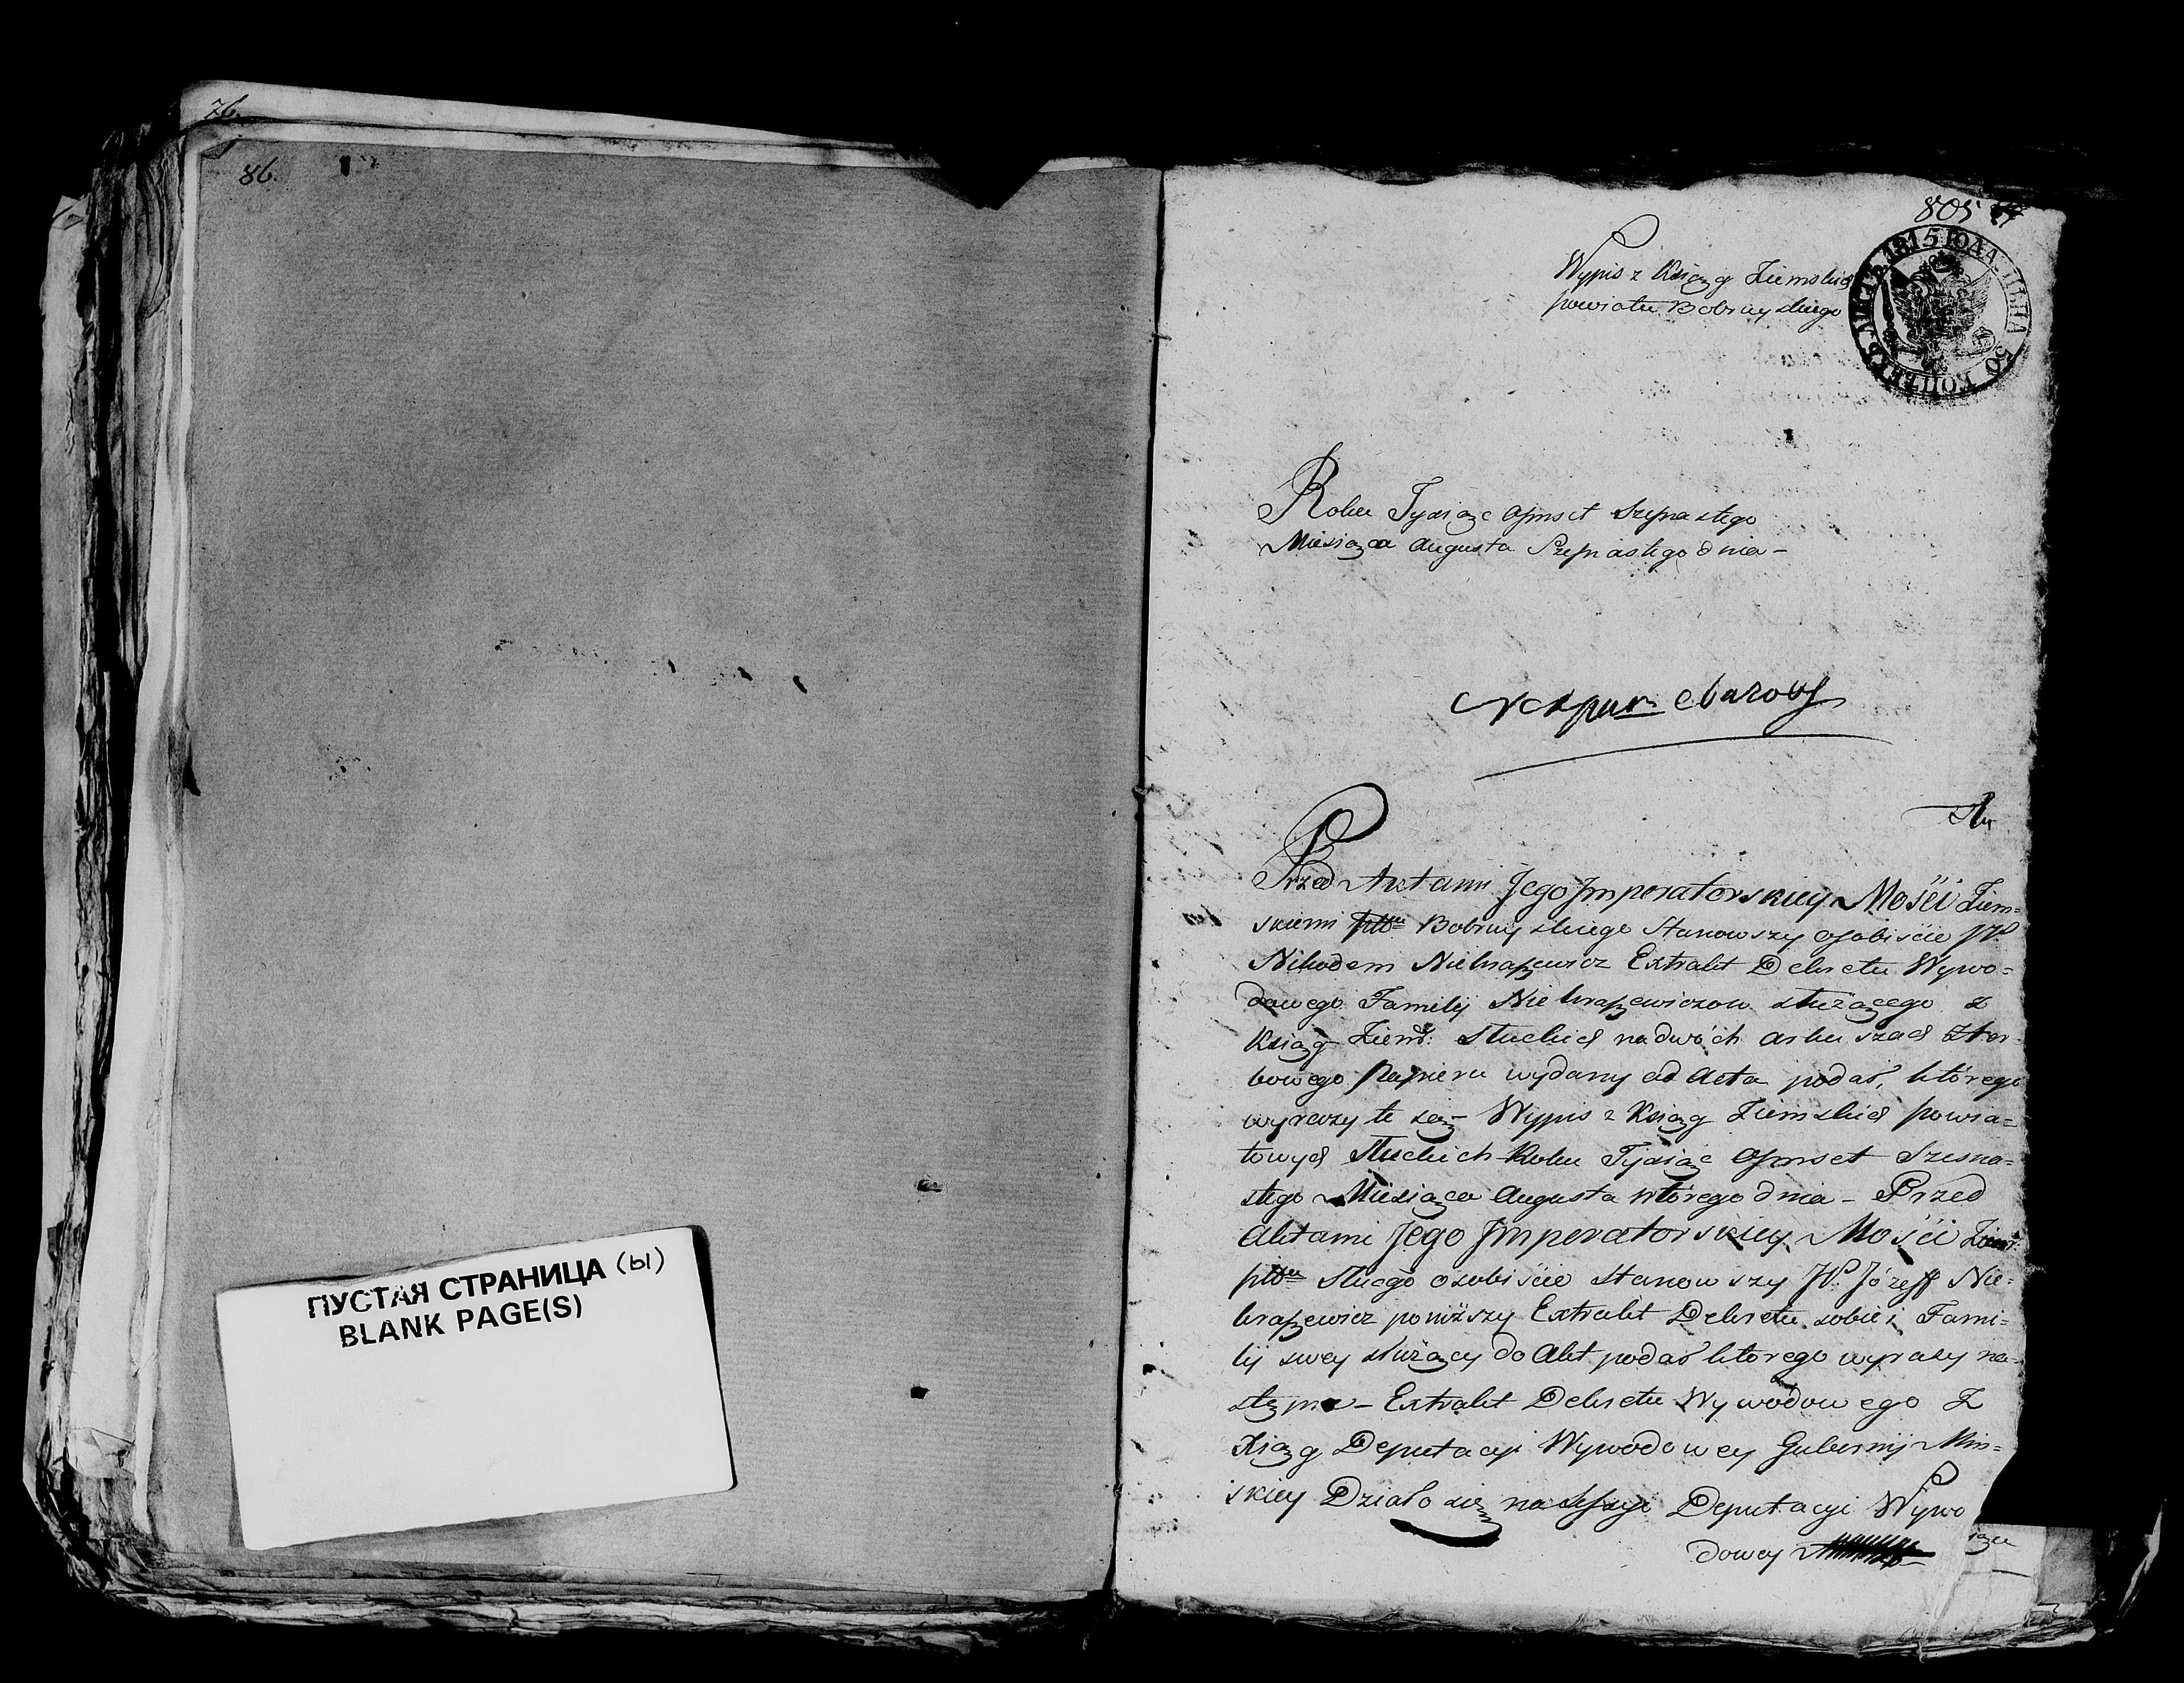 76.
86.
ПУСТАЯ СТРАНИЦА (ы)
BLANK PAGE(S)
805
Wypis z Xsiąg Ziemskich
powiatu Bobruyskiego
ЛИСТЪ 1815 ГОДА ЦѢНА 50 КОПѢЕКЪ
Roku Tysiąc Ośmset Szesnastego
Miesiąca Augusta Szesnastego dnia –
Przed Aktami Jego Imperatorskiey Mości Ziem=
skiemi pttu Bobruyskiego Stanowszy osobiście JP.
Nikodem Niekraszewicz Extrakt Dekretu Wywo=
dowego Familij Niekraszewiczow służącego z
Xsiąg Ziems: Słuckich na dwóch arkuszach Skar-
bowego Papieru wydany ad Acta podał, którego
wyrazy te są – Wypis z Xsiąg Ziemskich powia=
towych Słuckich Roku Tysiąc Ośmset Szesna=
stego Miesiąca Augusta wtórego dnia – Przed
Aktami Jego Imperatorskiey Mości Ziems:
pttu Słucgo osobiście stanowszy JP. Józeff Nie=
kraszewicz poniższy Extrakt Dekretu sobie i Fami=
lij swey służący do Akt podał którego wyrazy na=
stępne – Extrakt Dekretu Wywodowego Z
Xiąg Deputacyi Wywodowey Gubernij Miń=
skiey Działo się na Sessyi Deputacyi Wywo
dowey